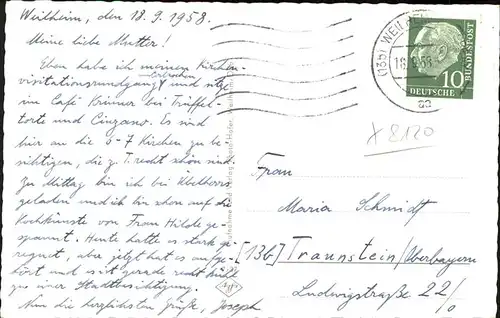 Weilheim, den 18.9.1958.
Meine liebe Mutter!
Eben habe ich meinen Kirchen-
visitationsrundgang und sitze
im Café Krönner bei Trüffel-
torte und Cinzano. Es sind
hier an die 6-7 Kirchen zu be-
sichtigen, die z. T. recht schön sind.
Zu Mittag bin ich bei
geladen und ich bin schon auf die
Kochkünste von Frau Hilde ge-
spannt. Heute hatte es stark ge-
regnet, aber jetzt hat es aufge-
hört und es ist gerade recht kühl
zu einer Stadtbesichtigung.
Nun die herzlichsten Grüße, Joseph
(13b) WEILHEIM
18.9.58
aa
10
DEUTSCHE
BUNDESPOST
x 8120
Frau
Maria Schmidt
[13b] Traunstein/Oberbayern
Ludwigstraße 22/0